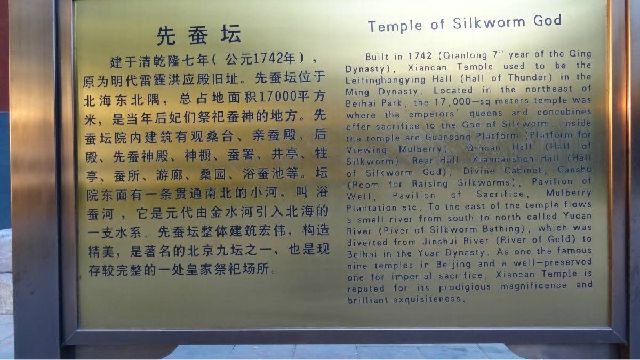 先蚕坛
建于清乾隆七年(公元1742年),
原为明代雷霆洪应殿旧址。先蚕坛位于
北海东北隅,总占地面积17000平方
米,是当年后妃们祭祀蚕神的地方。先
蚕坛院内建筑有观桑台、亲蚕殿、后
殿、先蚕神殿、神棚、蚕署、井亭、牲
亭、蚕所、游廊、桑园、浴蚕池等。坛
院东面有一条贯通南北的小河,叫浴
蚕河,它是元代由金水河引入北海的
一支水系。先蚕坛整体建筑宏伟,构造
精美,是著名的北京九坛之一,也是现
存较完整的一处皇家祭祀场所。
Temple of Silkworm God
Built in 1742 (Qianlong 7th year of the Qing
Dynasty), Xiancan Temple used to be the
Leitinghongying Hall (Hall of Thunder) in the
Ming Dynasty. Located in the northeast of
Beihai Park, the 17,000-sq meters temple was
where the emperors' queens and concubines
offer sacrifice to the God of Silkworm. Inside
the temple are Guansang Platform (Platform for
Viewing Mulberry), Qincan Hall (Hall of
Silkworm), Rear Hall, Xiancanshen Hall (Hall
of Silkworm God), Divine Cabinet, Canshu
(Room for Raising Silkworms), Pavilion of
Well, Pavilion of Sacrifice, Mulberry
Plantation etc. To the east of the temple flows
a small river from south to north called Yucan
River (River of Silkworm Bathing), which was
diverted from Jinshui River (River of Gold) to
Beihai in the Yuan Dynasty. As one the famous
nine temples in Beijing and a well-preserved
one for imperial sacrifice, Xiancan Temple is
reputed for its prodigious magnificence and
brilliant exquisiteness.